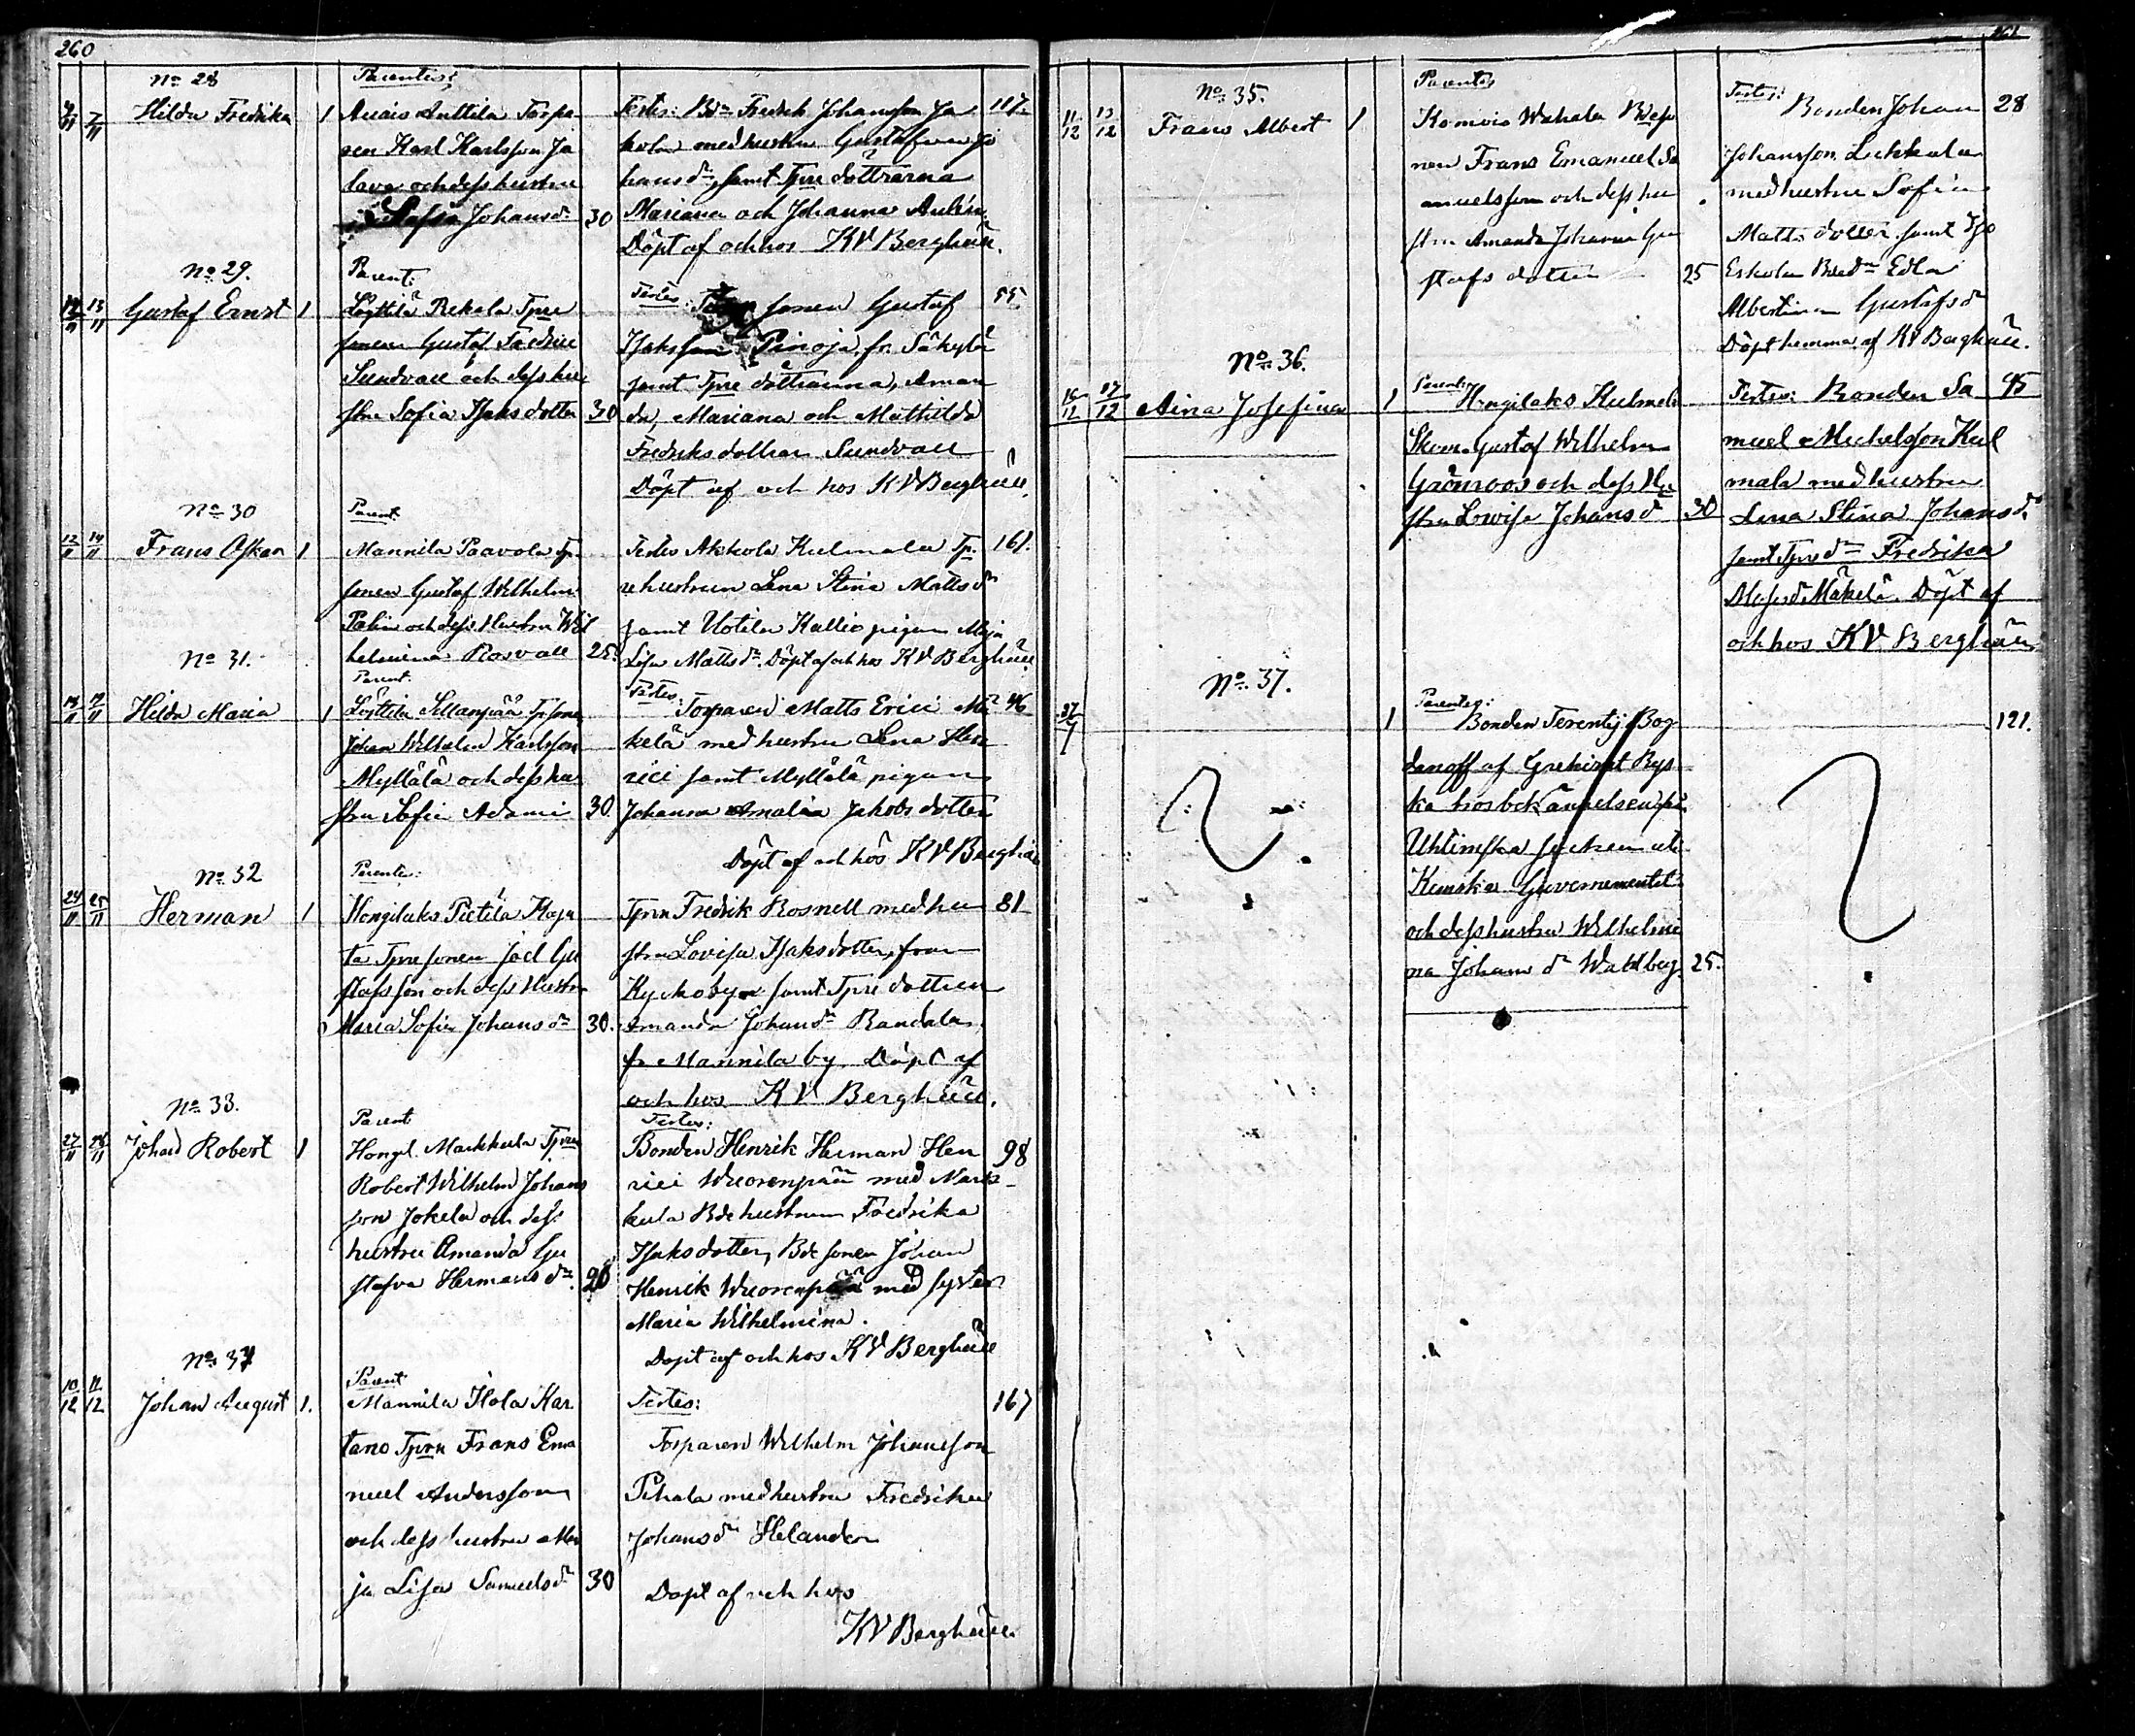 260
No 28
Parentes:
4/11 7/11 Hilda Fredrika 1
Anttila Torpa
ren Karl Karlsson Ja
lava och dess hustru
Sofia Johansdr 30
Testes: Bdn Fredrik Johansson Ja 117
kola med hustru Gustafva Jo
hansdr, samt Tpre döttrarna
Mariana och Johanna Aulén.
Döpt af och hos KV Berghäll.
No 29.
Parent:
13/11 Gustaf Ernst 1
Löyttilä Rekola Tpre
sonen Gustaf Fredric
Sundvall och dess hu
stru Sofia Isaksdotter 30
Testes: sonen Gustaf 55
Isaksson Pinoja fr. Säkylä
samt Tpre döttrarna, Aman
da, Mariana och Mathilda
Fredriksdöttrar Sundvall
Döpt af och hos KV Berghäll.
No 30
Parent.
12/11 14/11 Frans Oskar 1
Mannila Paavola Tp.
sonen Gustaf Wilhelm
Palin och dess Hustru Wil
helmina Rosvall 25.
Testes Akkola Kulmala Tp. 161.
rehustrun Lena Stina Mattsdr
samt Uotila Kallio pigan Maja
Lisa Mattsdr. Döpt af och hos KV Berghäll
No 31.
Parent.
Hilda Maria 1
Löyttilä Sillanpää Tpsonen
Johan Wilhelm Karlsson
Myllälä och dess hu
stru Sofia Adami 30.
Testes: Torparen Matts Erici Mä 46
kelä med hustru Lena Hen
rici samt Myllälä pigan
Johanna Amalia Jakobsdotter
Döpt af och hos KV Berghäll
No 32
Parentes:
24/11 25/11 Herman 1
Hongilaks Pietilä Koja
ta Tpresonen Joel Gu
stafsson och dess Hustru
Maria Sofia Johansdr 30.
Tprn Fredrik Rosnell med hu 81
stru Lovisa Isaksdotter, från
Kyckoby samt Tpre dottren
Amanda Johansdr Randala
fr Mannila by. Döpt af
och hos KV Berghäll.
No 33.
Parent
27/11 28/11 Johan Robert 1
Hongl. Markkula Tprn
Robert Wilhelm Johans
son Jokela och dess
hustru Amanda Gu
stafva Hermansdr. 26
Testes:
Bonden Henrik Herman Hen 98
rici Wuorenpää med Mark
kula Bdehustrun Fredrika
Isaksdotter, Bdesonen Johan
Henrik Wuorenpää med syster
Maria Wilhelmina.
Döpt af och hos KV Berghäll
No 34
Parent
10/12 11/12 Johan August 1.
Mannila Ilola Kar
tano Tprn Frans Ema
nuel Andersson
och dess hustru Ma
ja Lisa Samuelsdr 30
Testes: 167
Torparen Wilhelm Johansson
Pihala med hustru Fredrika
Johansdr Helander
Döpt af och hos
KV Berghäll
261
No. 35.
Parentes
11/12 13/12 Frans Albert 1
Komois Wahala Bdeso
nen Frans Emanuel Sa
muelsson och dess hu
stru Amanda Johanna Gu
stafsdotter 25
Testes: Bonden Johan 28
Johansson Lukkala
med hustru Sofia
Matts dotter samt
Eskola Bdedn Edla
Albertina Gustafsdr
Döpt hemma af KV Berghäll.
No. 36.
Parentes
16/12 17/12 Aina Josefina 1
Hongilaks Kulmala
Skom. Gustaf Wilhelm
Grönroos och dess Hu
stru Lovisa Johansdr 30
Testes: Bonden Sa 95
muel Michelsson Kul
mala med hustru
Lena Stina Johansdr
samt Tpredr Fredrika
Mosesdr Mäkelä. Döpt af
och hos KV Berghäll
No. 37.
Parentes:
27/7 1
Bonden Terentij Bog 121.
danoff af Grekiskt Rys
ka trosbekännelsen från
Uhtinska socknen uti
Kemska Guvernementet
och dess hustru Wilhelmi
na Johansdr Wahlberg 25.